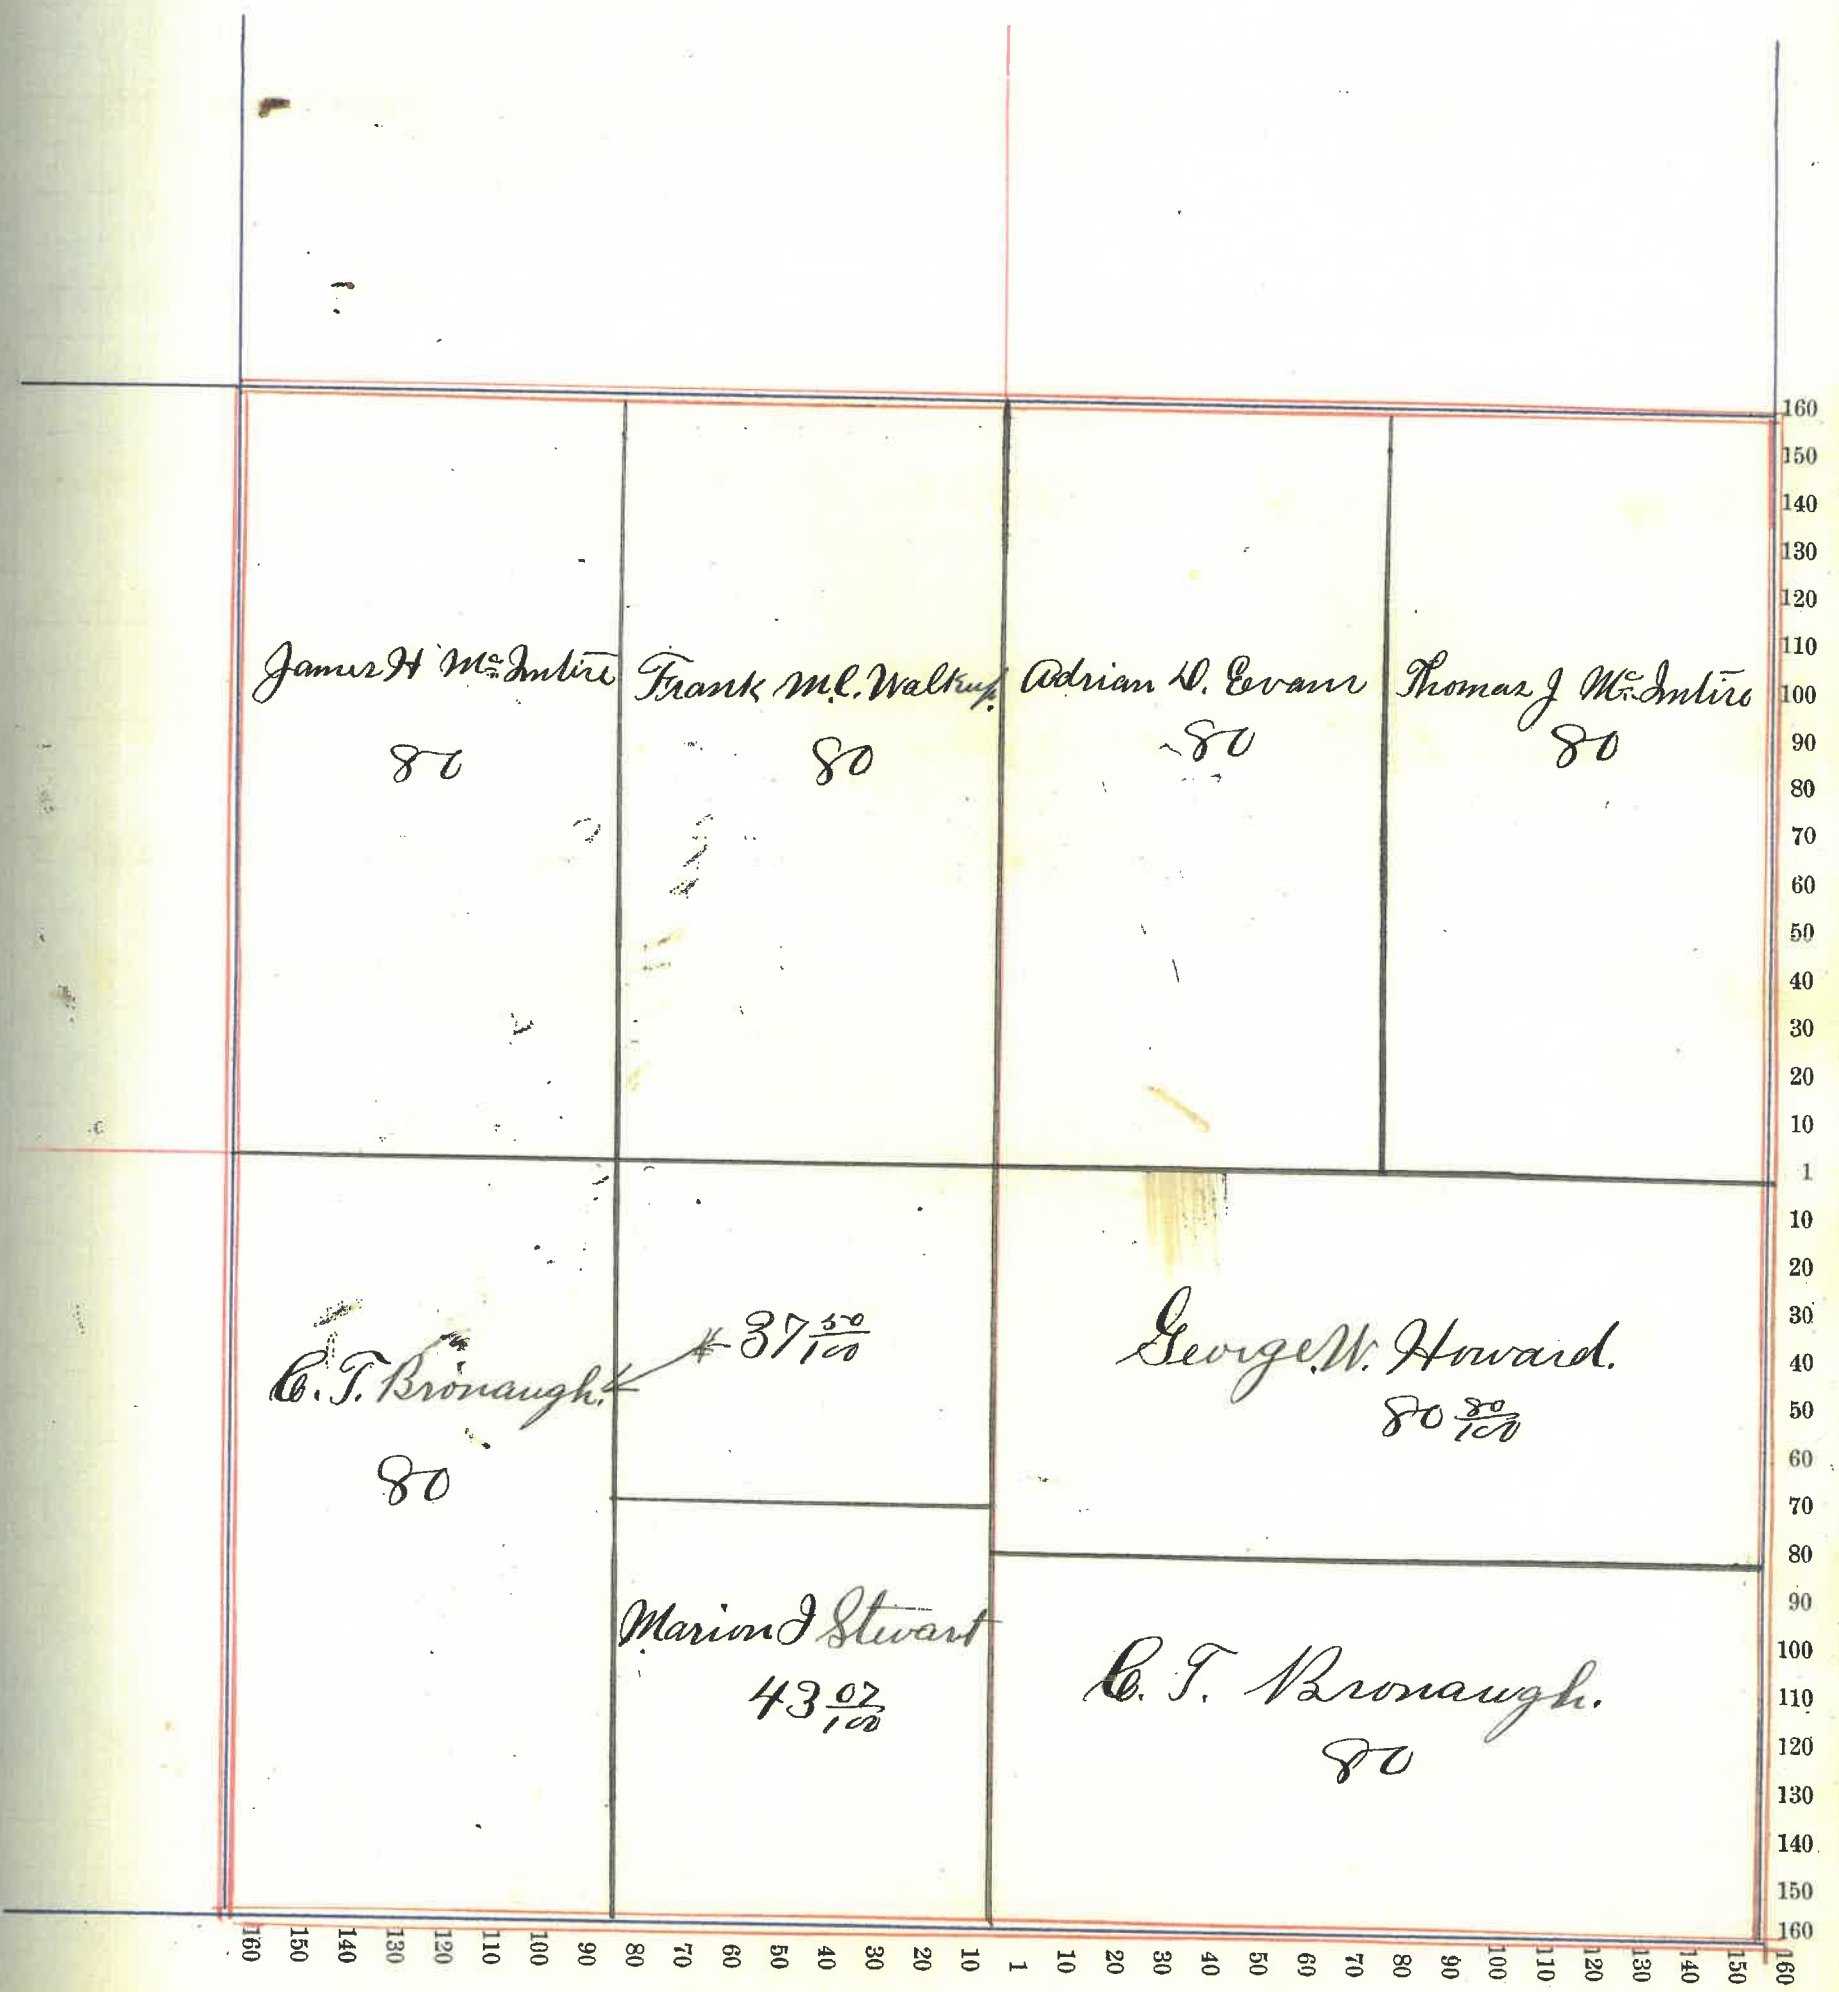 James H McIntire
80
Frank M.C. Walkup.
80
Adrian D. Evans
80
Thomas J McIntire
80
C. T. Bronaugh.
80
37 50/100
George W. Howard.
80 80/100
Marion J Stewart
43 07/100
C. T. Bronaugh.
80
160
150
140
130
120
110
100
90
80
70
60
50
40
30
20
10
1
10
20
30
40
50
60
70
80
90
100
110
120
130
140
150
160
160 150 140 130 120 110 100 90 80 70 60 50 40 30 20 10 1 10 20 30 40 50 60 70 80 90 100 110 120 130 140 150 160